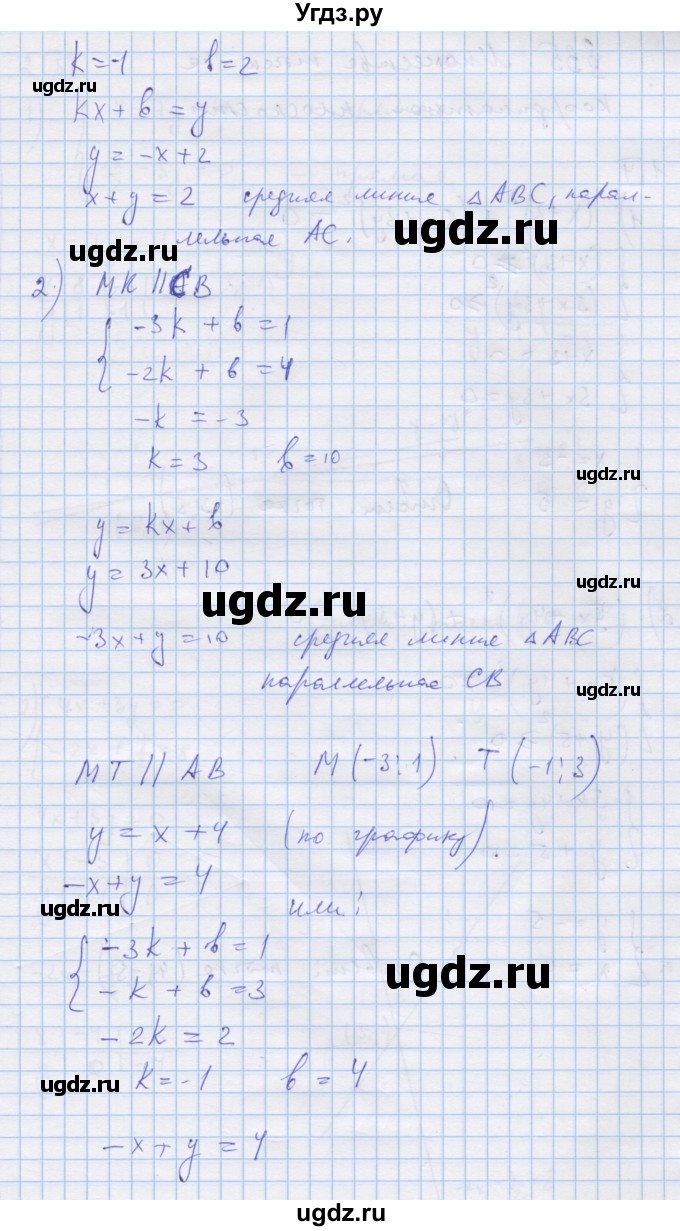 Угдз.ру
k = -1 b = 2
ugdz.ru
kx + b = y
y = -x + 2
ugdz.ru
x + y = 2 средняя линия △ABC, парал-
ugdz.ru
лельная AC.
ugdz.ru
2) MK || CB
{ -3k + b = 1
-2k + b = 4
-k = -3
k = 3 b = 10
ugdz.ru
y = kx + b
y = 3x + 10
ugdz.ru
ugdz.ru
-3x + y = 10 средняя линия △ABC
ugdz.ru
параллельная CB
ugdz.ru
MT // AB M (-3; 1) T (-1; 3)
y = x + 4 (по графику).
-x + y = 4
ugdz.ru
или:
{ -3k + b = 1
ugdz.ru
-k + b = 3
-2k = 2
ugdz.ru
k = -1 b = 4
-x + y = 4
ugdz.ru